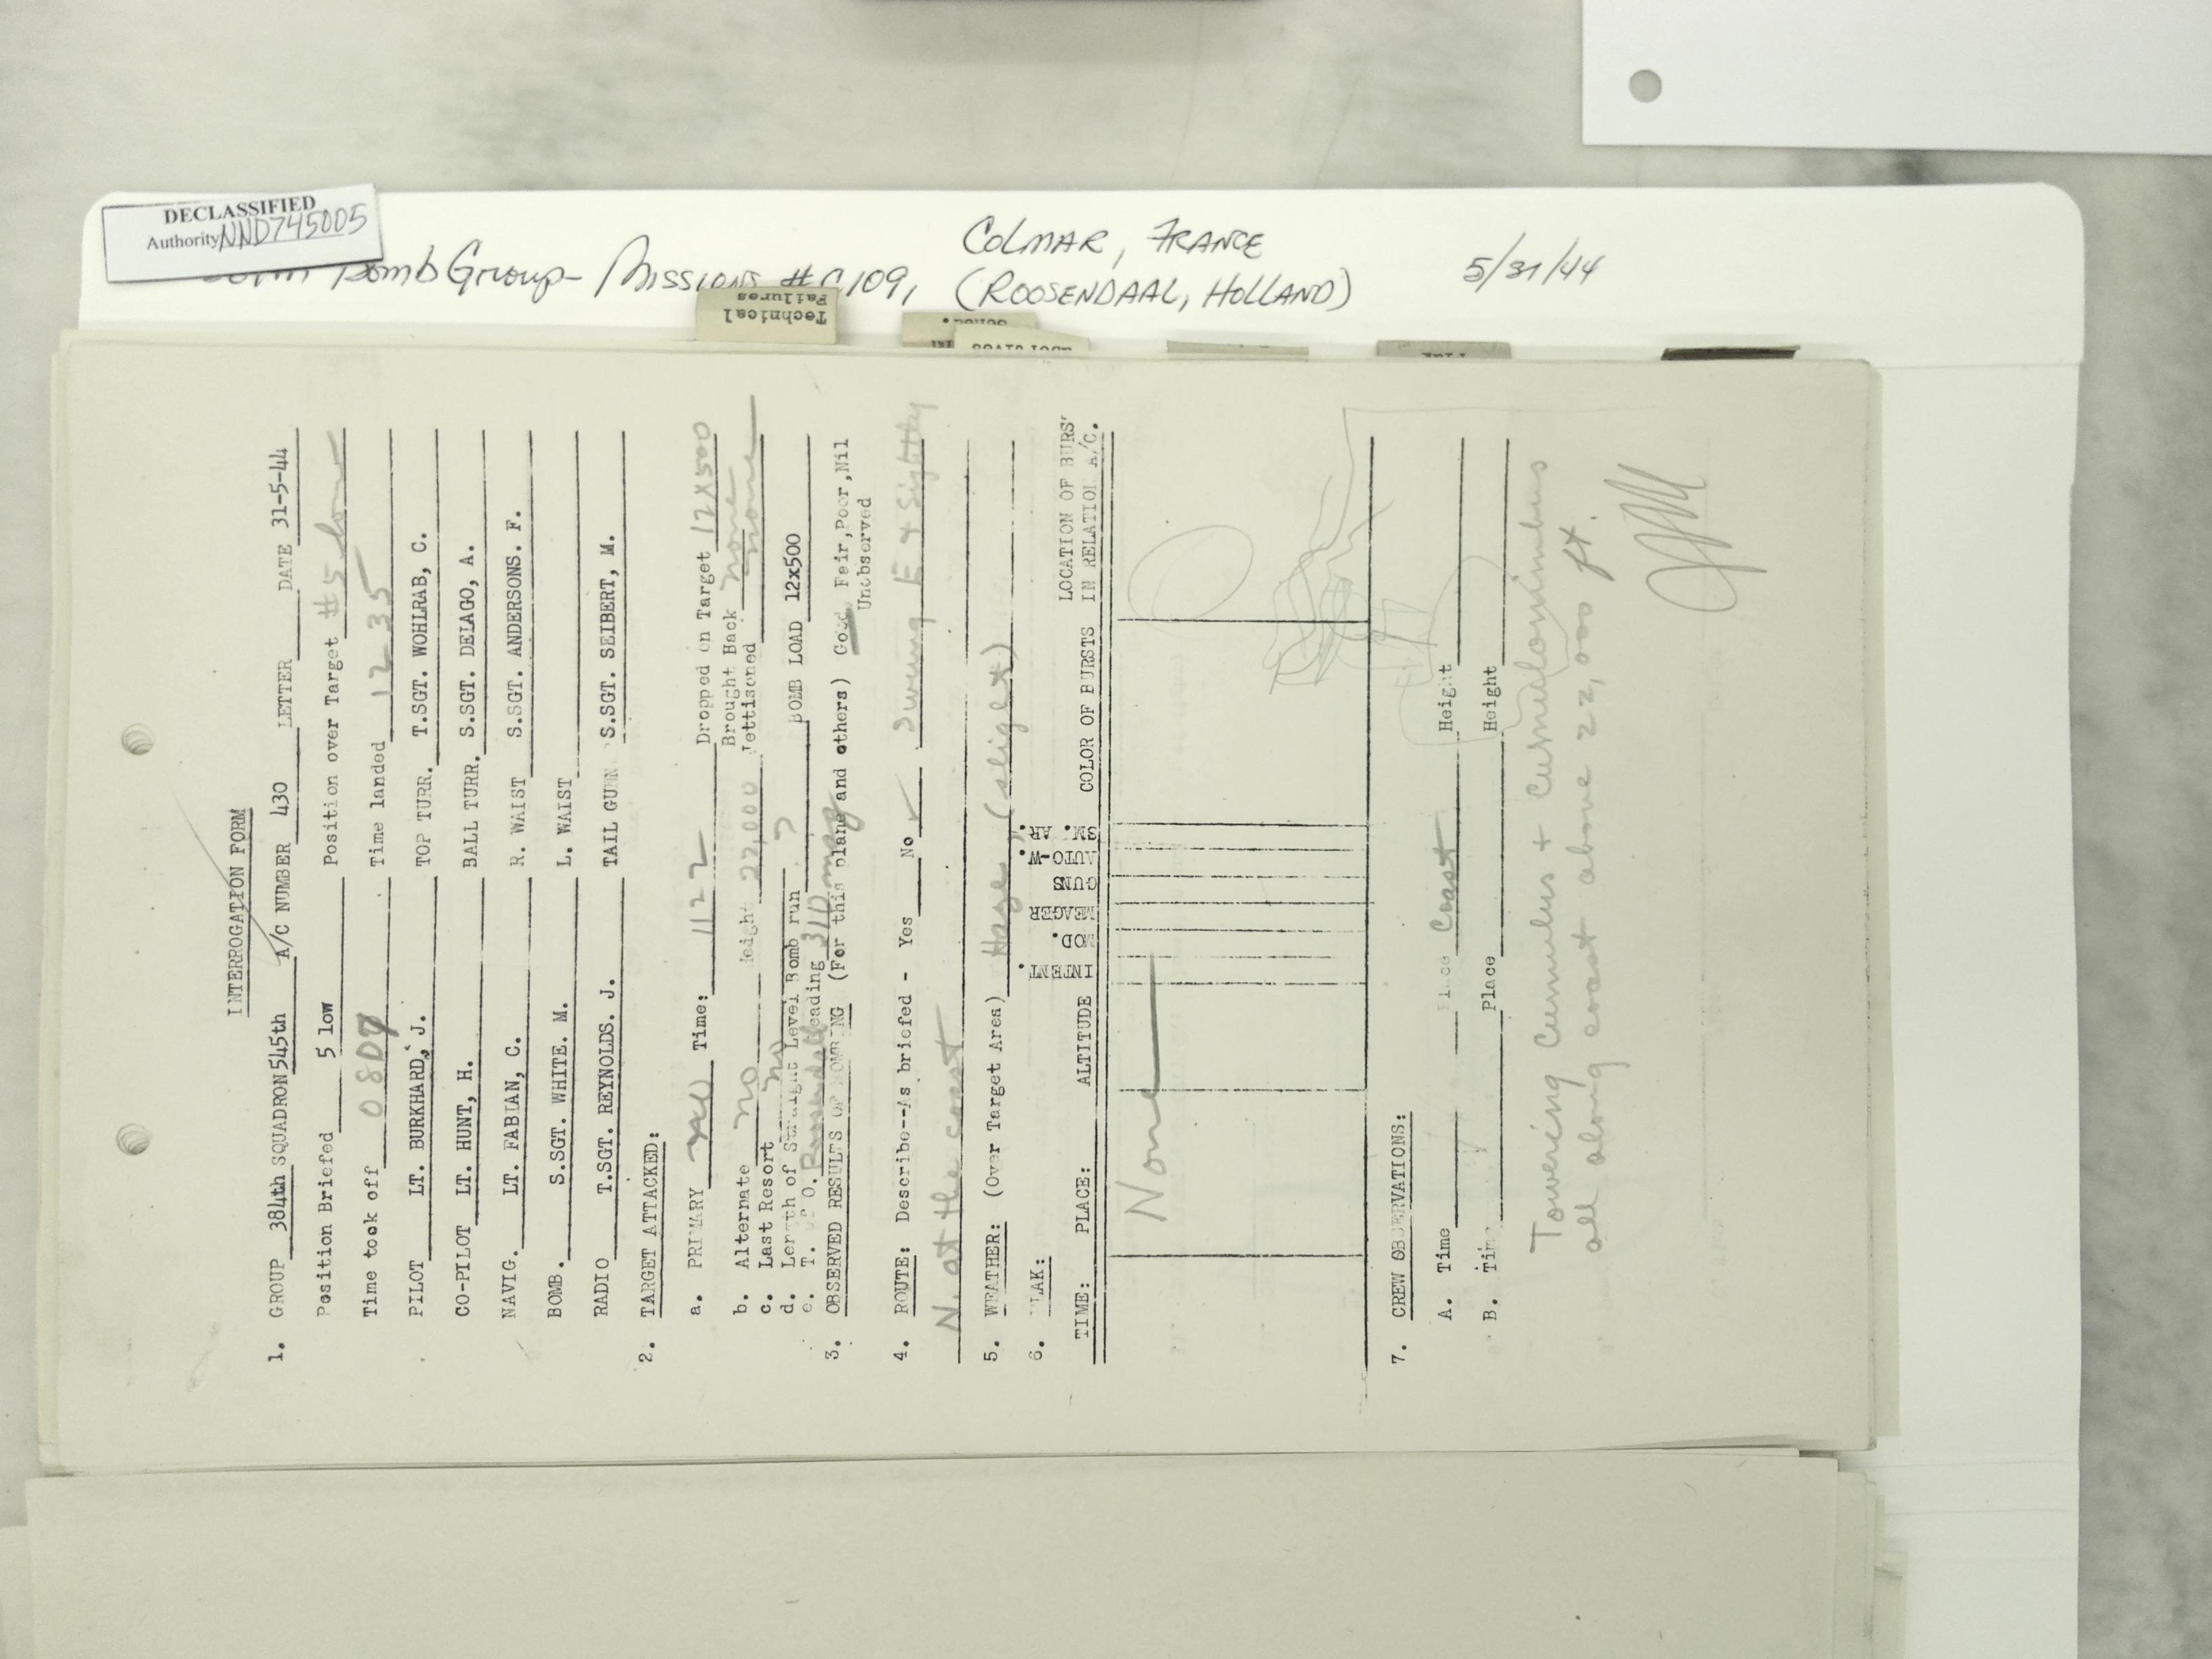 DECLASSIFIED
Authority NND745005
Bomb Group - Missions # 109,
COLMAR, FRANCE
(ROOSENDAAL, HOLLAND)
5/31/44
Technical
Failures
INTERROGATION FORM
1. GROUP 384th SQUADRON 545th A/C NUMBER 430 LETTER DATE 31-5-44
Position Briefed 5 low Position over Target #5 low
Time took off 0807 Time landed 1235
PILOT LT. BURKHARD, J. TOP TURR. T.SGT. WOHLRAB, C.
CO-PILOT LT. HUNT, H. BALL TURR. S.SGT. DELAGO, A.
NAVIG. LT. FABIAN, C. R. WAIST S.SGT. ANDERSONS. F.
BOMB. S.SGT. WHITE. M. L. WAIST
RADIO T.SGT. REYNOLDS. J. TAIL GUN S.SGT. SEIBERT, M.
2. TARGET ATTACKED:
a. PRIMARY Time: 1122 Dropped on Target 12X500
Brought Back none
b. Alternate no Height 22,000 Jettisoned none
c. Last Resort no
d. Length of Straight Level Bomb run ? BOMB LOAD 12x500
e. T. of O. Roosendall Heading 310 mag
3. OBSERVED RESULTS OF BOMBING (For this plane and others) Good, Fair, Poor, Nil
Unobserved
4. ROUTE: Describe--As briefed - Yes No ✓ Swung E + Slightly
N. at the coast
5. WEATHER: (Over Target Area) Haze (slight)
6. FLAK:
TIME: PLACE: ALTITUDE INTENT. MOD. MEAGER GUNS AUTO-W. SM. AR. COLOR OF BURSTS LOCATION OF BURS'
IN RELATION A/C.
None
7. CREW OBSERVATIONS:
A. Time Place Coast Height
B. Time Place Height
Towering Cumulus + Cumulonimbus
all along coast above 22,000 ft.